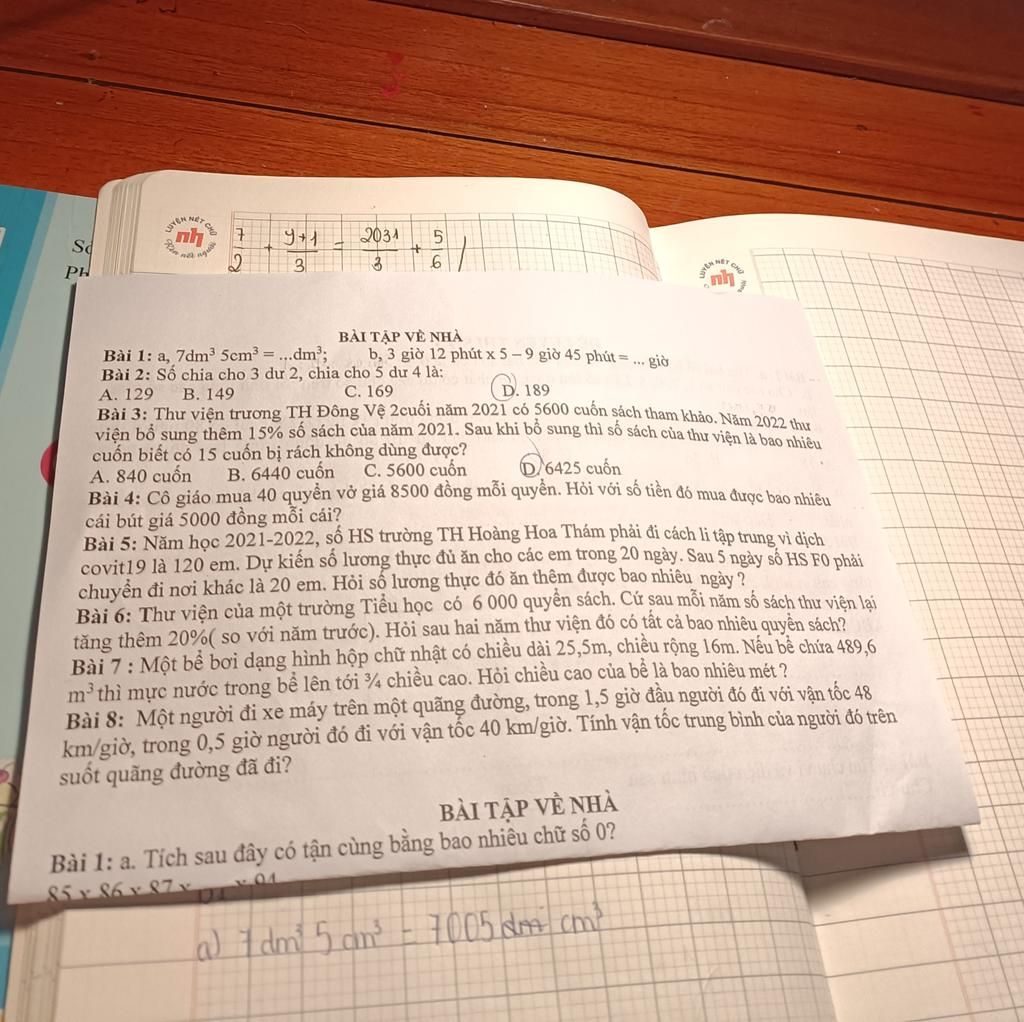 LUYỆN NÉT CHỮ
nh
Rèn nết người
7/2 + y+1/3 = 2031/3 + 5/6
LUYỆN NÉT CHỮ
nh
Số
Ph
BÀI TẬP VỀ NHÀ
Bài 1: a, 7dm³ 5cm³ = ...dm³; b, 3 giờ 12 phút x 5 – 9 giờ 45 phút = ... giờ
Bài 2: Số chia cho 3 dư 2, chia cho 5 dư 4 là:
A. 129 B. 149 C. 169 D. 189
Bài 3: Thư viện trương TH Đông Vệ 2cuối năm 2021 có 5600 cuốn sách tham khảo. Năm 2022 thư
viện bổ sung thêm 15% số sách của năm 2021. Sau khi bổ sung thì số sách của thư viện là bao nhiêu
cuốn biết có 15 cuốn bị rách không dùng được?
A. 840 cuốn B. 6440 cuốn C. 5600 cuốn D. 6425 cuốn
Bài 4: Cô giáo mua 40 quyển vở giá 8500 đồng mỗi quyển. Hỏi với số tiền đó mua được bao nhiêu
cái bút giá 5000 đồng mỗi cái?
Bài 5: Năm học 2021-2022, số HS trường TH Hoàng Hoa Thám phải đi cách li tập trung vì dịch
covit19 là 120 em. Dự kiến số lương thực đủ ăn cho các em trong 20 ngày. Sau 5 ngày số HS F0 phải
chuyển đi nơi khác là 20 em. Hỏi số lương thực đó ăn thêm được bao nhiêu ngày ?
Bài 6: Thư viện của một trường Tiểu học có 6 000 quyển sách. Cứ sau mỗi năm số sách thư viện lại
tăng thêm 20%( so với năm trước). Hỏi sau hai năm thư viện đó có tất cả bao nhiêu quyển sách?
Bài 7 : Một bể bơi dạng hình hộp chữ nhật có chiều dài 25,5m, chiều rộng 16m. Nếu bể chứa 489,6
m³ thì mực nước trong bể lên tới ¾ chiều cao. Hỏi chiều cao của bể là bao nhiêu mét ?
Bài 8: Một người đi xe máy trên một quãng đường, trong 1,5 giờ đầu người đó đi với vận tốc 48
km/giờ, trong 0,5 giờ người đó đi với vận tốc 40 km/giờ. Tính vận tốc trung bình của người đó trên
suốt quãng đường đã đi?
BÀI TẬP VỀ NHÀ
Bài 1: a. Tích sau đây có tận cùng bằng bao nhiêu chữ số 0?
85 x 86 x 87 x x 94
a) 7 dm³ 5 cm³ = 7005 dm cm³